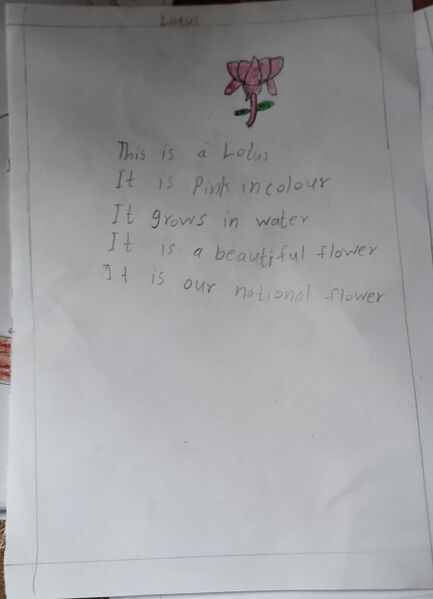 Lotus
This is a Lotus
It is Pink in colour
It grows in water
It is a beautiful flower
It is our national flower